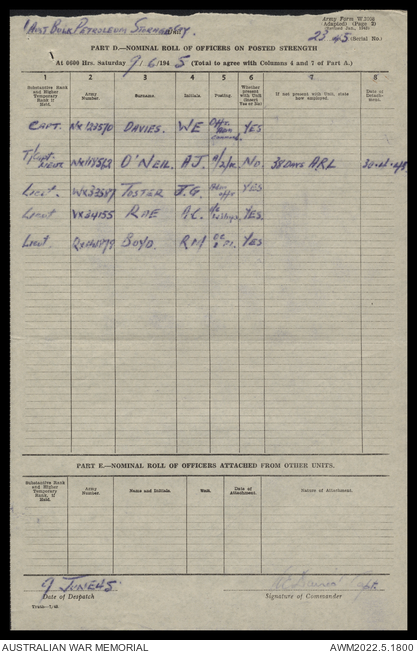 1 Aust Bulk Petroleum Storage Coy.
Army Form W.3008
(Adapted) (Page 2)
23/45 (Serial No.)
PART D.—NOMINAL ROLL OF OFFICERS ON POSTED STRENGTH
At 0600 Hrs. Saturday 9/6/1945 (Total to agree with Columns 4 and 7 of Part A.)
1 2 3 4 5 6 7 8
Substantive Rank and Higher Temporary Rank if Held. Army Number. Surname. Initials. Posting. Whether present with Unit (Insert Yes or No) If not present with Unit, state how employed. Date of Detachment.
CAPT. NX123570 DAVIES. WE YES
O'NEIL. AJ. NO. 38 DAYS ARL
Lieut. FOSTER J.G. YES
Lieut VX34155 RAE A.C. YES.
Lieut BOYD. RM YES
PART E.—NOMINAL ROLL OF OFFICERS ATTACHED FROM OTHER UNITS.
Substantive Rank and Higher Temporary Rank, if Held. Army Number. Name and Initials. Unit. Date of Attachment. Nature of Attachment.
9 JUNE 45 Capt.
Date of Despatch Signature of Commander
AUSTRALIAN WAR MEMORIAL AWM2022.5.1800